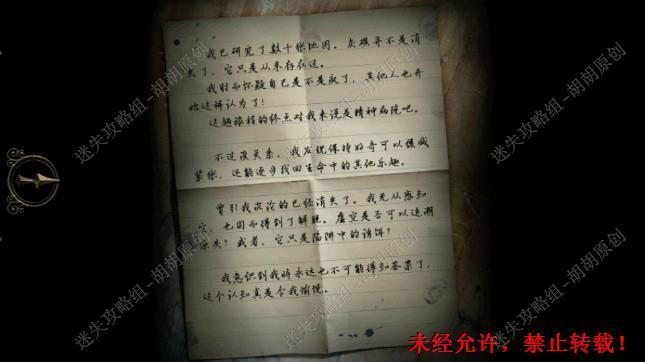 我已研究了数千张地图。灰礁并不是消
失了，它只是从来存在过。
我时而怀疑自己是不是疯了，其他人也开
始这样认为了！
这趟旅程的终点对我来说是精神病院吧。
不过没关系，我发现保持好奇可以缓减
紧张，还能逐步找回生命中的其他乐趣。
曾引我沉沦的已经消失了。我无从感知
它，也因而得到了解脱。虚空是否可以追溯
源头？或者，它只是陷阱中的诱饵？
我意识到我将永远也不可能得知答案了，
这个认知真是令我愉悦。
迷失攻略组-胡胡原创
迷失攻略组-胡胡原创
迷失攻略组-胡胡原创
迷失攻略组-胡胡原创
迷失攻略组-胡胡原创
迷失攻略组-胡胡原创
未经允许，禁止转载！